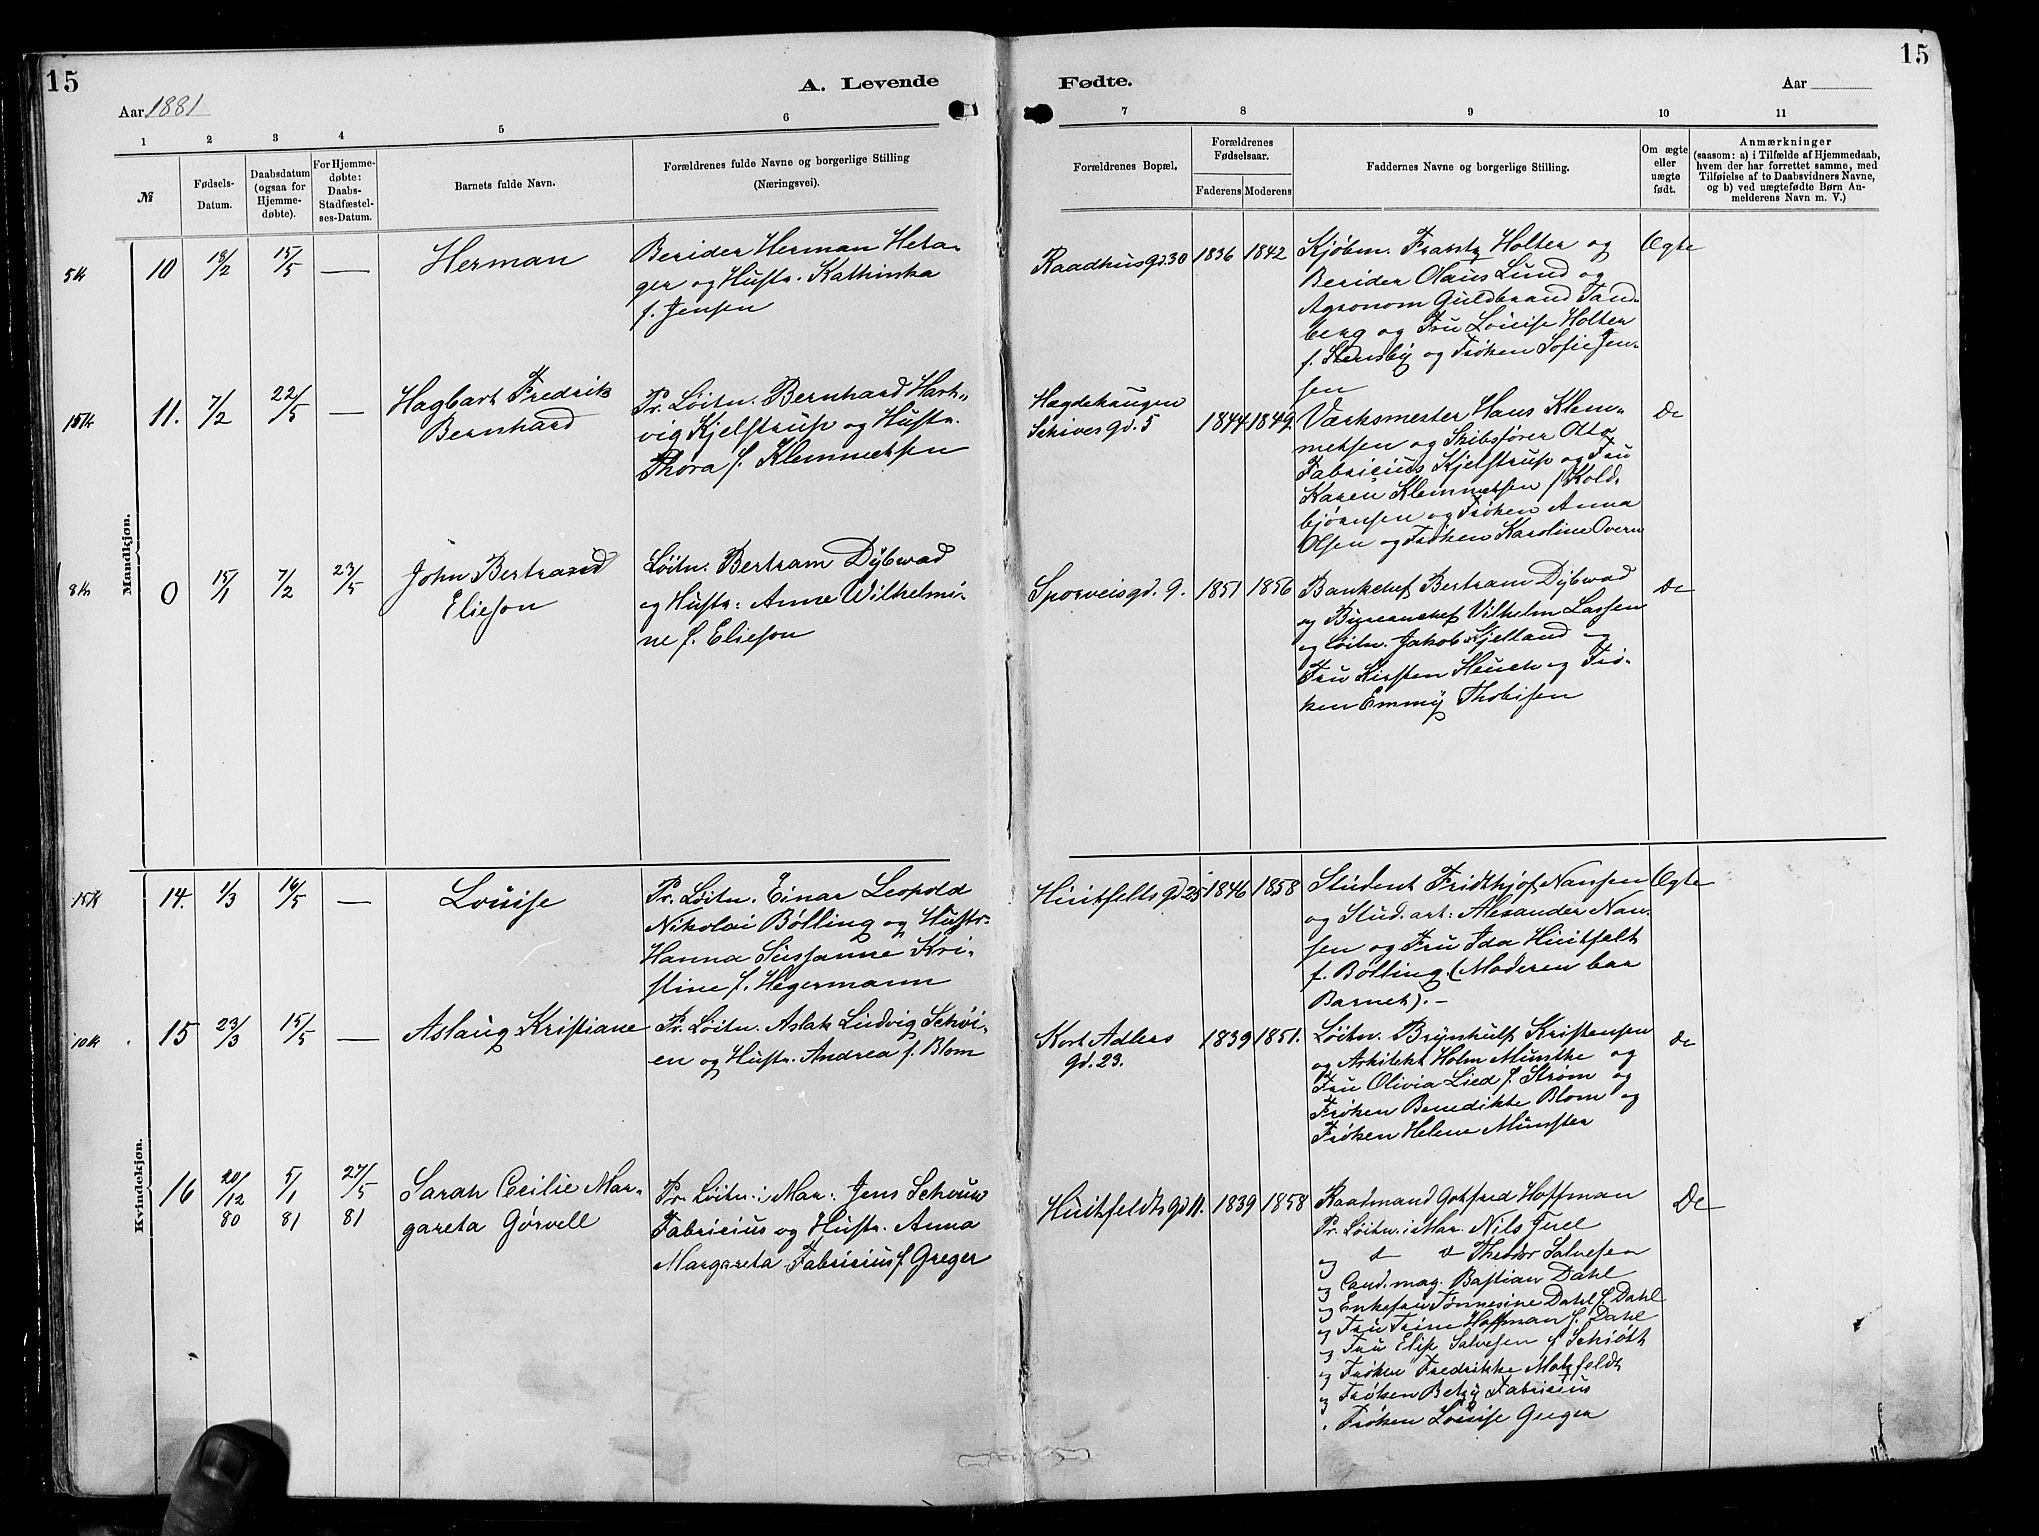 15
A. Levende
Fødte.
15
Aar 1881
Aar
1
2
3
4
5
6
7
8
9
10
11
№
Fødsels-
Datum.
Daabsdatum
(ogsaa for
Hjemme-
døbte).
For Hjemme-
døbte:
Daabs-
Stadfæstel-
ses-Datum.
Barnets fulde Navn.
Forældrenes fulde Navne og borgerlige Stilling
(Næringsvei).
Forældrenes Bopæl.
Forældrenes
Fødselsaar.
Faderens
Moderens
Faddernes Navne og borgerlige Stilling.
Om ægte
eller
uægte
født.
Anmærkninger
(saasom: a) i Tilfælde af Hjemmedaab,
hvem der har forrettet samme, med
Tilføielse af to Daabsvidners Navne,
og b) ved uægtefødte Børn An-
melderens Navn m. V.)
Mandkjøn.
5 K
10
18/2
15/5
—
Herman
Berider Herman Heta-
ger og Hustr. Kathinka
f. Jensen
Raadhusgd. 30
1836
1842
Kjøbm. Frantz Holter og
Berider Olaus Lund og
Agronom Guldbrand Tand-
berg og Fru Louise Holter
f. Stensby og Frøken Sofie Jen-
sen
Ægte
15 K
11.
7/2
22/5
—
Hagbart Fredrik
Bernhard
Pr. Løitn. Bernhard Hart-
vig Kjelstrup og Hustr.
Thora f. Klemmetsen
Hægdehaugen
Schives gd. 5
1844
1849.
Værksmester Hans Klem-
metsen og Skibsfører Otto
Fabricius Kjelstrup og Fru
Karen Klemmetsen f. Kold-
bjørnsen og Frøken Anna
Olsen og Frøken Karoline Overn
Do
8 K
0
15/1
7/2
23/5
John Bertrand
Elieson
Løitn. Bertram Dybwad
og Hustr: Anne Wilhelmi-
ne f. Elieson
Sporveisgd. 9.
1851
1856
Bankchef Bertram Dybwad
og Bureauchef Vilhelm Lassen
og Løitn. Jakob Kjelland og
Fru Kirsten Heuch og Frø-
ken Emmy Thobisen
Do
Kvindekjøn.
15 K
14.
1/3
16/5
—
Louise
Pr. Løitn. Einar Leopold
Nikolai Bølling og Hustr.
Hanna Susanne Kri-
stine f. Hegermann
Huitfeltsgd. 25
1846
1858
Student Fridthjof Nansen
og Stud. art: Alexander Nan-
sen og Fru Ida Huitfelt
f. Bølling. (Moderen bar
Barnet). —
Ægte
10 K
15
23/3
15/5
—
Aslaug Kristiane
Pr. Løitn. Aslak Ludvig Schøi-
en og Hustr. Andrea f. Blom
Kort Adlers
gd. 23.
1839
1851.
Løitn. Brynhulf Kristensen
og Arkitekt Holm Munthe og
Fru Olivia Lied f. Strøm og
Frøken Benedikte Blom og
Frøken Helene Münster
Do
16
20/12
80
5/1
81
27/5
81
Sarah Cecilie Mar-
gareta Gørvell
Pr. Løitn. i Mar. Jens Schouw
Fabricius og Hustr. Anna
Margareta Fabricius f. Greger
Huitfeldtsgd 11.
1839
1858
Raadmand Gotfred Hoffman
Pr. Løitn. i Mar. Nils Juel
og Theodor Salvesen
og Cand. mag. Bastian Dahl
og Enkefru Tønnesine Dahl f. Dahl
og Fru Trine Hoffman f. Dahl
og Fru Elise Salvesen f. Schiøtt
og Frøken Fredrikke Motzfeldt
og Frøken Betzy Fabricius
Frøken Louise Greger
Do